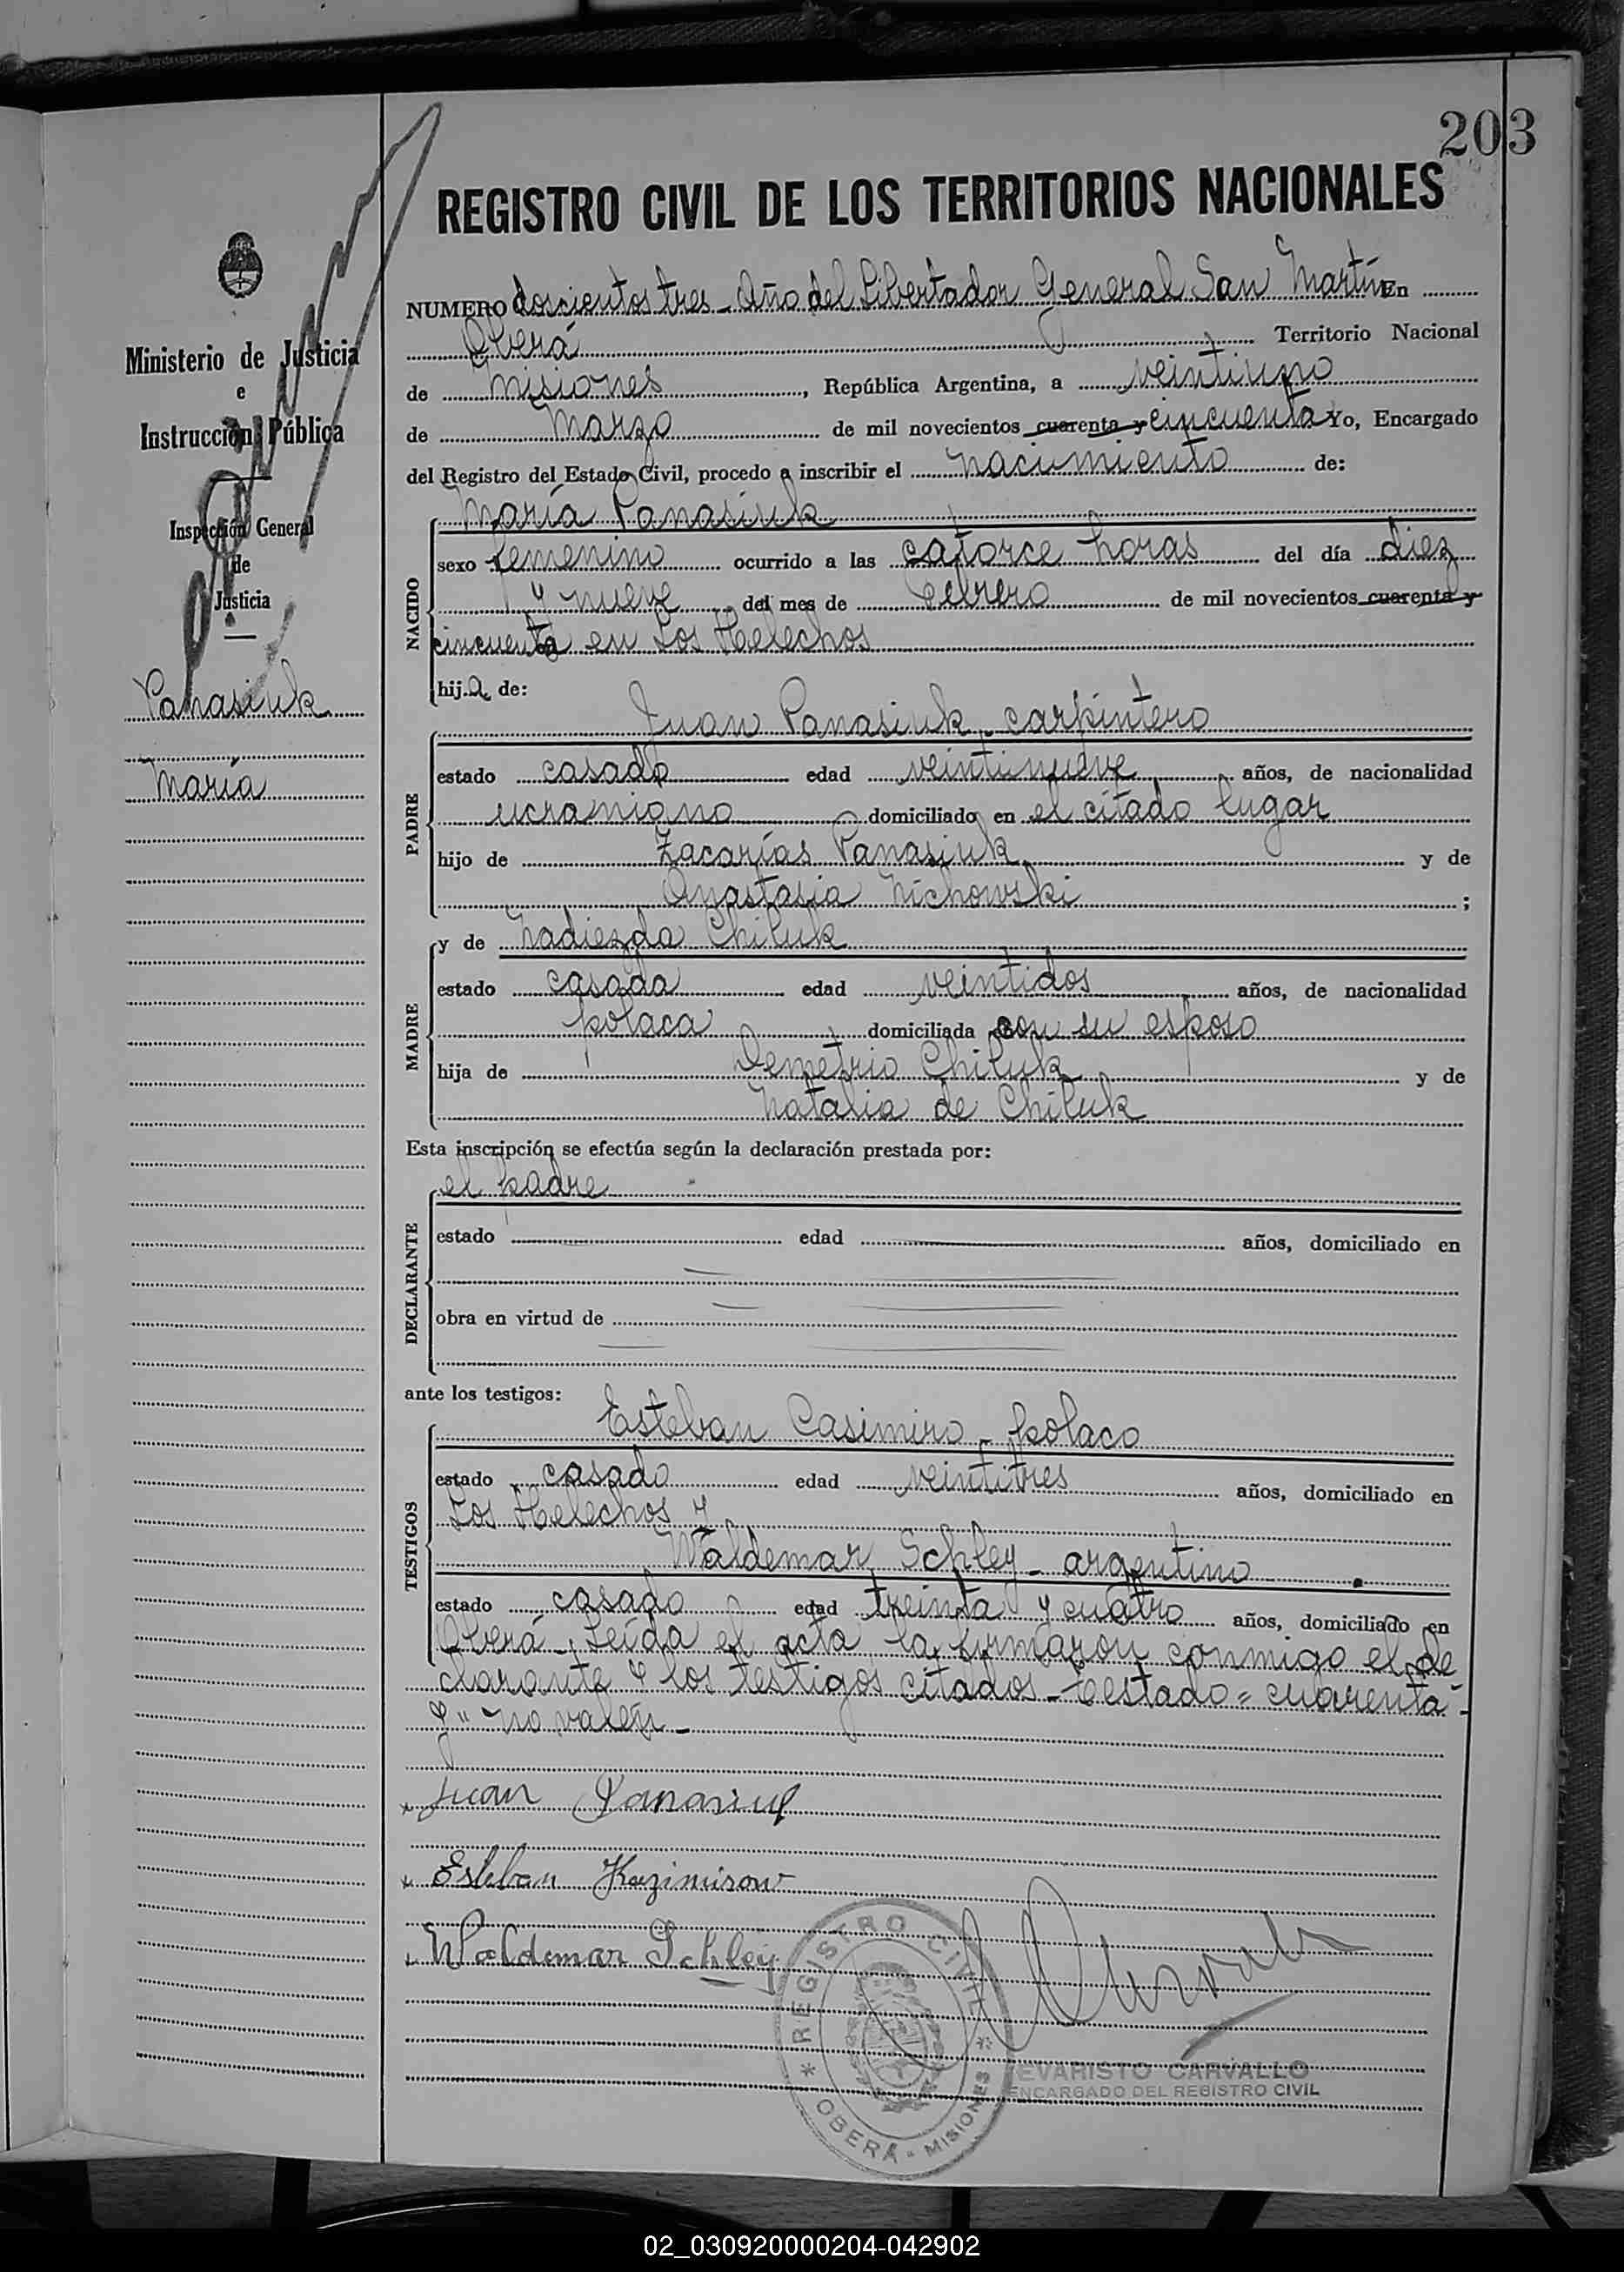 203
REGISTRO CIVIL DE LOS TERRITORIOS NACIONALES
NUMERO doscientos tres - Año del Libertador General San Martín En
Oberá Territorio Nacional
de Misiones, República Argentina, a veintiuno
de Marzo de mil novecientos cuarenta y cincuenta Yo, Encargado
del Registro del Estado Civil, procedo a inscribir el nacimiento de:
María Panasiuk
NACIDO
sexo femenino ocurrido a las catorce horas del día diez
y nueve del mes de febrero de mil novecientos cuarenta y
cincuenta en Los Helechos
hija de:
Juan Panasiuk - carpintero
PADRE
estado casado edad veintinueve años, de nacionalidad
ucraniano domiciliado en el citado lugar
hijo de Zacarías Panasiuk y de
Anastasia Nichowski ;
y de Nadiezda Chiluk
MADRE
estado casada edad veintidos años, de nacionalidad
polaca domiciliada con su esposo
hija de Demetrio Chiluk y de
Natalia de Chiluk
Esta inscripción se efectúa según la declaración prestada por:
el padre
DECLARANTE
estado edad años, domiciliado en
obra en virtud de
ante los testigos:
Esteban Casimiro - polaco
TESTIGOS
estado casado edad veintitres años, domiciliado en
Los Helechos y
Waldemar Schley - argentino
estado casado edad treinta y cuatro años, domiciliado en
Oberá - Leída el acta la firmaron conmigo el de
clarante y los testigos citados - Testado = cuarenta
y" no valen -
Juan Panasiuk
Esteban Kazimirow
Waldemar Schley
REGISTRO CIVIL
OBERÁ - MISIONES
EVARISTO CARVALLO
ENCARGADO DEL REGISTRO CIVIL
Ministerio de Justicia
e
Instrucción Pública
Inspección General
de
Justicia
Panasiuk
María
02_030920000204-042902